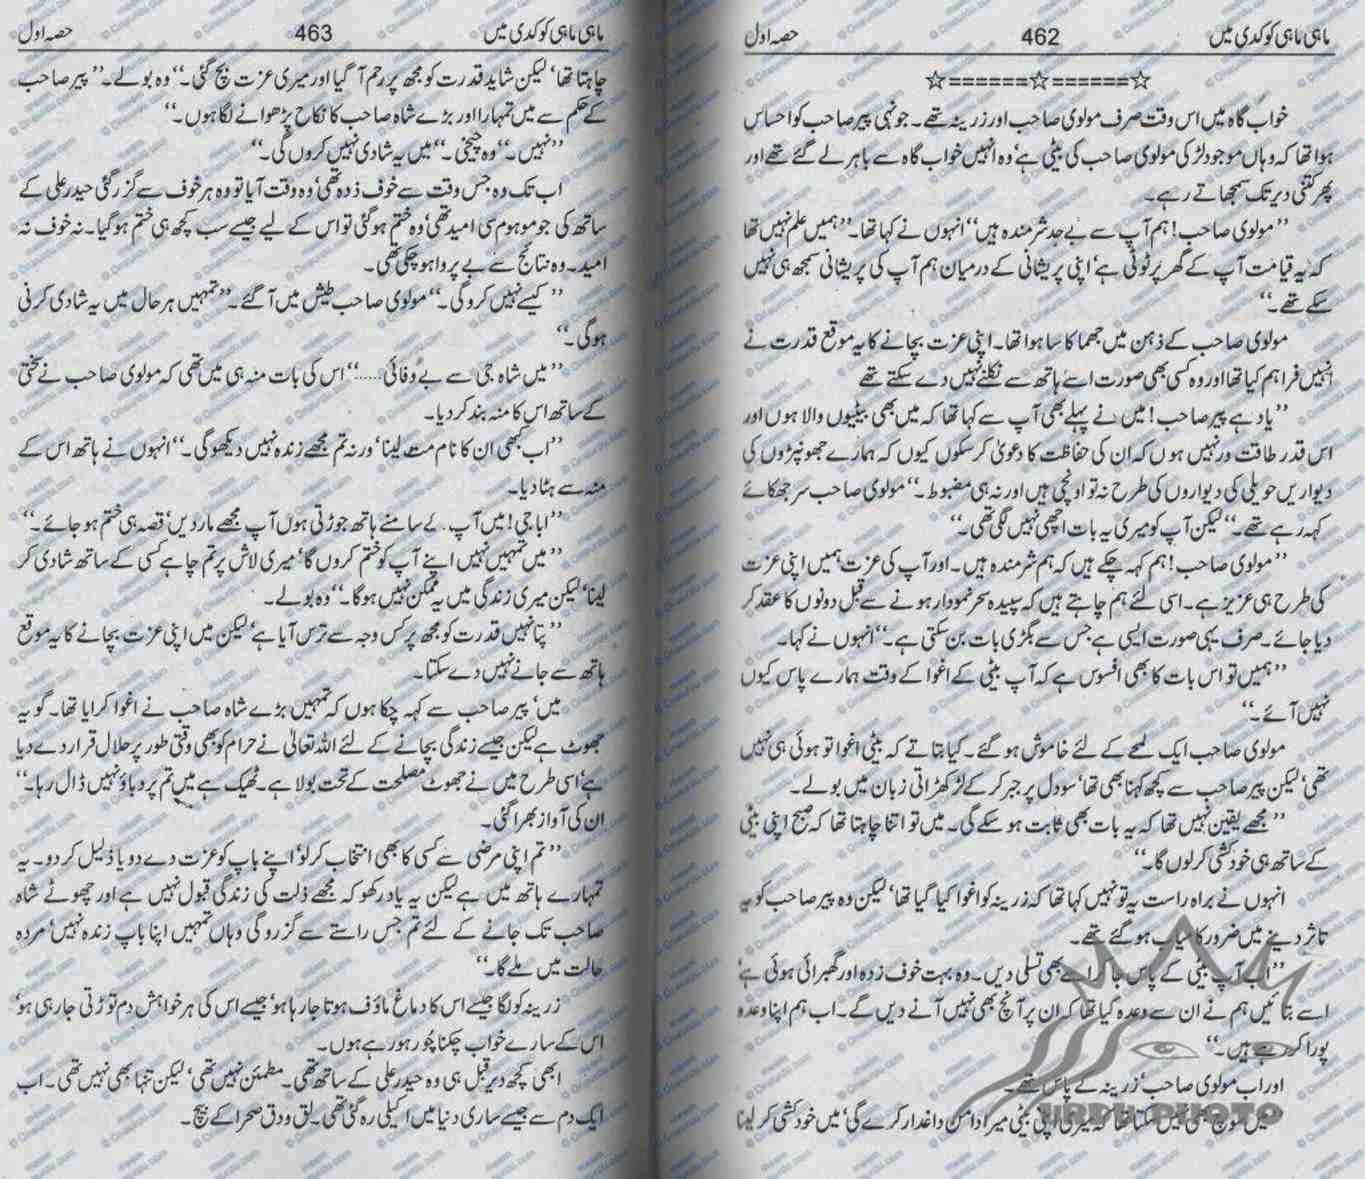 ماہی ماہی کوکدی میں 462 حصہ اول
☆======☆======☆
خواب گاہ میں اس وقت صرف مولوی صاحب اور زرینہ تھے۔ جونہی پیر صاحب کو احساس
ہوا تھا کہ وہاں موجود لڑکی مولوی صاحب کی بیٹی ہے‘ وہ انہیں خواب گاہ سے باہر لے گئے تھے اور
پھر کتنی دیر تک سمجھاتے رہے۔
’’مولوی صاحب! ہم آپ سے بے حد شرمندہ ہیں‘‘ انہوں نے کہا تھا۔ ’’ہمیں علم نہیں تھا
کہ یہ قیامت آپ کے گھر پر ٹوٹی ہے‘ اپنی پریشانی کے درمیان ہم آپ کی پریشانی سمجھ ہی نہیں
سکے تھے۔‘‘
مولوی صاحب کے ذہن میں جھماکا سا ہوا تھا۔ اپنی عزت بچانے کا یہ موقع قدرت نے
انہیں فراہم کیا تھا اور وہ کسی بھی صورت اسے ہاتھ سے نکلنے نہیں دے سکتے تھے
’’یاد ہے پیر صاحب! میں نے پہلے بھی آپ سے کہا تھا کہ میں بھی بیٹیوں والا ہوں اور
اس قدر طاقت ور نہیں ہوں کہ ان کی حفاظت کا دعویٰ کر سکوں کیوں کہ ہمارے جھونپڑوں کی
دیواریں حویلی کی دیواروں کی طرح نہ تو اونچی ہیں اور نہ ہی مضبوط۔‘‘ مولوی صاحب سر جھکائے
کہہ رہے تھے۔ ’’لیکن آپ کو میری یہ بات اچھی نہیں لگی تھی۔‘‘
’’مولوی صاحب! ہم کہہ چکے ہیں کہ ہم شرمندہ ہیں۔ اور آپ کی عزت ہمیں اپنی عزت
کی طرح ہی عزیز ہے۔ اسی لئے ہم چاہتے ہیں کہ سپیدہ سحر نمودار ہونے سے قبل دونوں کا عقد کر
دیا جائے۔ صرف یہی صورت ایسی ہے جس سے بگڑی بات بن سکتی ہے۔‘‘ انہوں نے کہا۔
’’ہمیں تو اس بات کا بھی افسوس ہے کہ آپ بیٹی کے اغوا کے وقت ہمارے پاس کیوں
نہیں آئے۔‘‘
مولوی صاحب ایک لمحے کے لئے خاموش ہو گئے۔ کیا بتاتے کہ بیٹی اغوا تو ہوئی ہی نہیں
تھی‘ لیکن پیر صاحب سے کچھ کہنا بھی تھا‘ سو دل پر جبر کر کے لڑکھڑاتی زبان میں بولے۔
’’مجھے یقین نہیں تھا کہ یہ بات بھی ثابت ہو سکے گی۔ میں تو اتنا چاہتا تھا کہ صبح اپنی بیٹی
کے ساتھ ہی خودکشی کر لوں گا۔‘‘
انہوں نے براہ راست یہ تو نہیں کہا تھا کہ زرینہ کو اغوا کیا گیا تھا‘ لیکن وہ پیر صاحب کو یہ
تاثر دینے میں ضرور کامیاب ہو گئے تھے۔
’’اب آپ بیٹی کے پاس جا کر اسے بھی تسلی دیں۔ وہ بہت خوف زدہ اور گھبرائی ہوئی ہے‘
اسے بتائیں ہم نے ان سے وعدہ کیا تھا کہ ان پر آنچ بھی نہیں آنے دیں گے۔ اب ہم اپنا وعدہ
پورا کر رہے ہیں۔‘‘
اور اب مولوی صاحب‘ زرینہ کے پاس تھے۔
میں سوچ بھی نہیں سکتا تھا کہ میری اپنی بیٹی میرا دامن داغدار کرے گی‘ میں خودکشی کر لینا
URDU PHOTO
ماہی ماہی کوکدی میں 463 حصہ اول
چاہتا تھا‘ لیکن شاید قدرت کو مجھ پر رحم آ گیا اور میری عزت بچ گئی۔‘‘ وہ بولے۔ ’’پیر صاحب
کے حکم سے میں تمہارا اور بڑے شاہ صاحب کا نکاح پڑھوانے لگا ہوں۔‘‘
’’نہیں۔‘‘ وہ چیخی۔ ’’میں یہ شادی نہیں کروں گی۔‘‘
اب تک وہ جس وقت سے خوف زدہ تھی‘ وہ وقت آیا تو وہ ہر خوف سے گزر گئی حیدر علی کے
ساتھ کی جو موہوم سی امید تھی‘ وہ ختم ہو گئی تو اس کے لیے جیسے سب کچھ ہی ختم ہو گیا۔ نہ خوف نہ
امید۔ وہ نتائج سے بے پروا ہو چکی تھی۔
’’کیسے نہیں کرو گی۔‘‘ مولوی صاحب طیش میں آ گئے۔ ’’تمہیں ہر حال میں یہ شادی کرنی
ہو گی۔‘‘
’’میں شاہ جی سے بے وفائی.....‘‘ اس کی بات منہ ہی میں تھی کہ مولوی صاحب نے سختی
کے ساتھ اس کا منہ بند کر دیا۔
’’اب کبھی ان کا نام مت لینا‘ ورنہ تم مجھے زندہ نہیں دیکھو گی۔‘‘ انہوں نے ہاتھ اس کے
منہ سے ہٹا دیا۔
’’ابا جی! میں آپ کے سامنے ہاتھ جوڑتی ہوں آپ مجھے مار دیں‘ قصہ ہی ختم ہو جائے۔‘‘
’’میں تمہیں نہیں اپنے آپ کو ختم کروں گا‘ میری لاش پر تم چاہے کسی کے ساتھ شادی کر
لینا‘ لیکن میری زندگی میں یہ ممکن نہیں ہو گا۔‘‘ وہ بولے۔
’’پتا نہیں قدرت کو مجھ پر کس وجہ سے ترس آیا ہے‘ لیکن میں اپنی عزت بچانے کا یہ موقع
ہاتھ سے جانے نہیں دے سکتا۔
میں‘ پیر صاحب سے کہہ چکا ہوں کہ تمہیں بڑے شاہ صاحب نے اغوا کرایا تھا۔ گو یہ
جھوٹ ہے لیکن جیسے زندگی بچانے کے لئے اللہ تعالیٰ نے حرام کو بھی وقتی طور پر حلال قرار دے دیا
ہے‘ اسی طرح میں نے جھوٹ مصلحت کے تحت بولا ہے۔ ٹھیک ہے میں تم پر دباؤ نہیں ڈال رہا۔‘‘
ان کی آواز بھرا گئی۔
’’تم اپنی مرضی سے کسی کا بھی انتخاب کر لو‘ اپنے باپ کو عزت دے دو یا ذلیل کر دو۔ یہ
تمہارے ہاتھ میں ہے لیکن یہ یاد رکھو کہ مجھے ذلت کی زندگی قبول نہیں ہے اور چھوٹے شاہ
صاحب تک جانے کے لئے تم جس راستے سے گزرو گی وہاں تمہیں اپنا باپ زندہ نہیں‘ مردہ
حالت میں ملے گا۔‘‘
زرینہ کو لگا جیسے اس کا دماغ ماؤف ہوتا جا رہا ہو‘ جیسے اس کی ہر خواہش دم توڑتی جا رہی ہو‘
اس کے سارے خواب چکنا چُور ہو رہے ہوں۔
ابھی کچھ دیر قبل ہی وہ حیدر علی کے ساتھ تھی۔ مطمئن نہیں تھی‘ لیکن تنہا بھی نہیں تھی۔ اب
ایک دم سے جیسے ساری دنیا میں اکیلی رہ گئی تھی۔ لق و دق صحرا کے بیچ۔